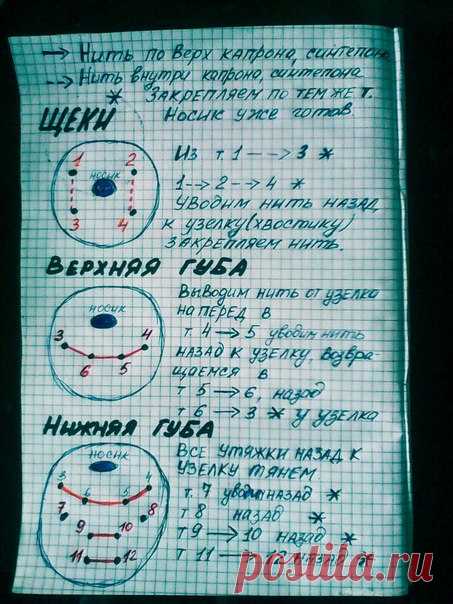 → Нить по верх капрона, синтепона
--> Нить внутри капрона, синтепона
* Закрепляем по тем же т.
ЩЕКИ
Носик уже готов.
1 2
НОСИК
3 4
Из т. 1 --> 3 *
1 --> 2 --> 4 *
Уводим нить назад
к узелку (хвостику)
Закрепляем нить.
ВЕРХНЯЯ ГУБА
НОСИК
3 4
6 5
Выводим нить от узелка
наперед в
т 4 → 5 уводим нить
назад к узелку, возвра-
щаемся в
т 5 → 6, назад
т 6 → 3 * у узелка
НИЖНЯЯ ГУБА
НОСИК
3 4
6 5
7 8
9 10
11 12
Все утяжки назад к
узелку тянем
т. 7 уводим назад *
т 8 назад *
т 9 → 10 назад *
т 11 → 12 назад *
postila.ru